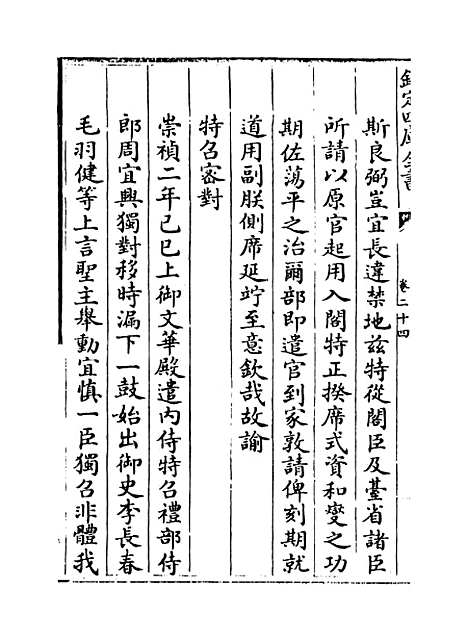 欽定四庫全書
卷二十四
斯良弼豈宜長違禁地兹特從閣臣及臺省諸臣
所請以原官起用入閣特正揆席式資和燮之功
期佐蕩平之治爾部即遣官到家敦請俾刻期就
道用副朕側席延竚至意欽哉故諭
特召密對
崇禎二年己巳上御文華殿遣内侍特召禮部侍
郎周宜興獨對移時漏下一鼓始出御史李長春
毛羽健等上言聖主舉動宜慎一臣獨召非體我